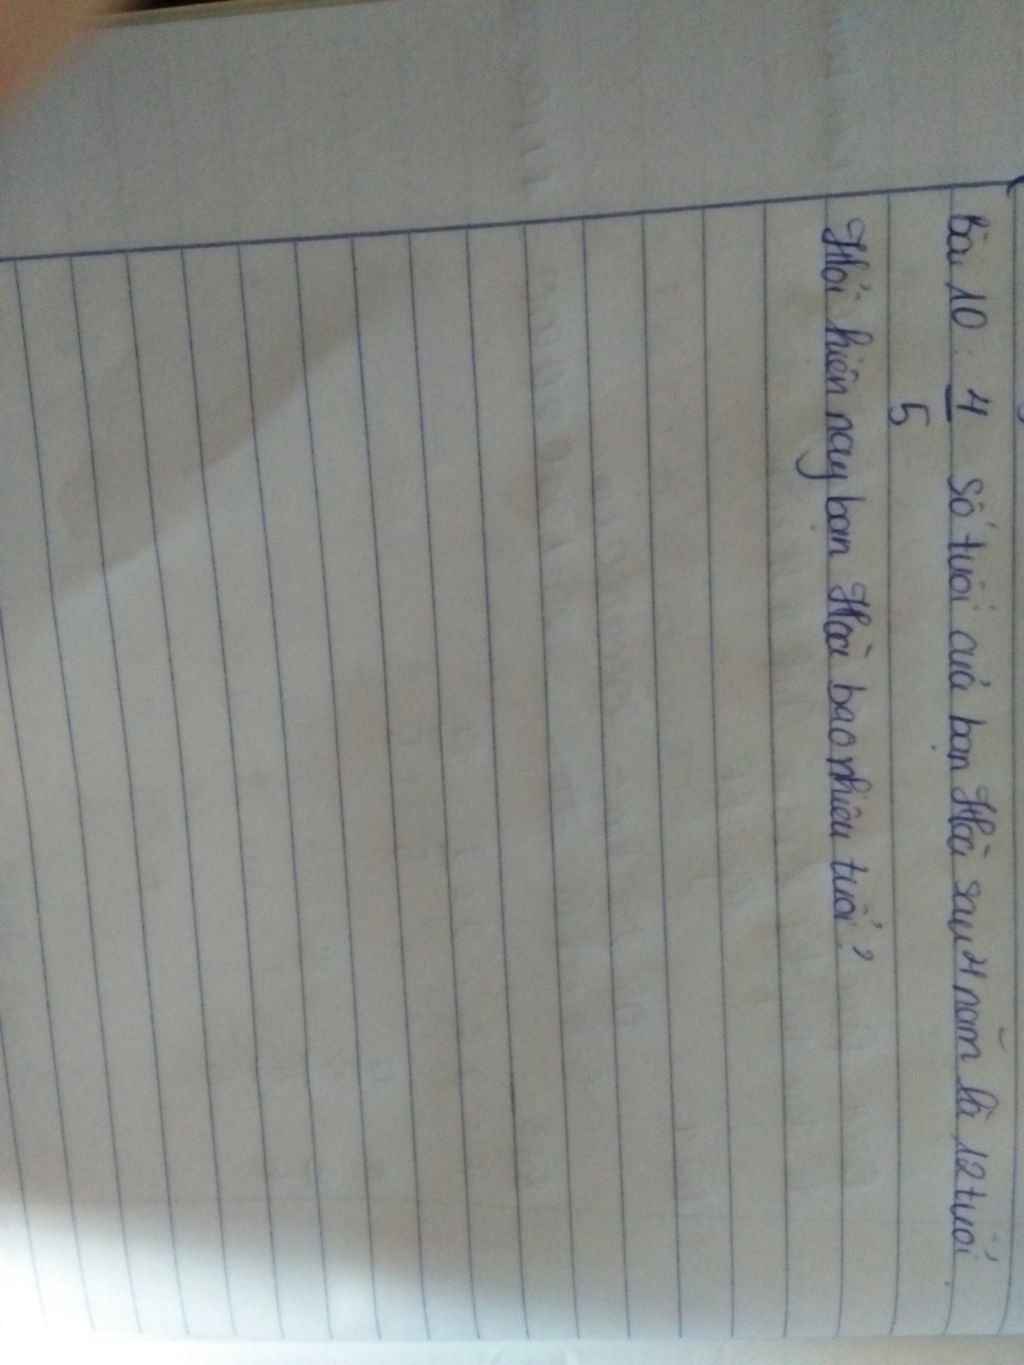 Bài 10: 4/5 số tuổi của bạn Hoà sau 4 năm là 12 tuổi.
Hỏi hiện nay bạn Hoà bao nhiêu tuổi?